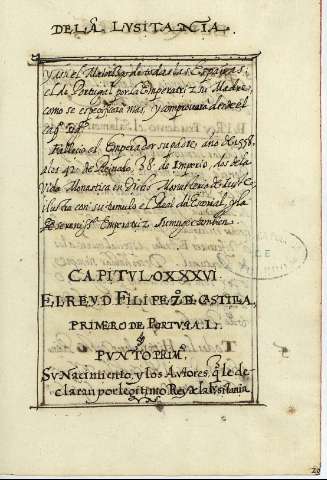 DE LA LUSITANIA.
y assi el Maiorazgo de todas las Españas,
el de Portugal por la Emperatriz su Madre,
como se especificará mas, y comprovará desde el
cap.
Fallecio el Emperador su padre año de 1558.
a los 42. de Reynado, 38. de Imperio, dos de la
vida Monastica en dicho Monasterio de Iuste
ilustra con su tumulo el Real da Escorial, y la
Sereniss. Emperatriz su muger tambien.
CAPITULO XXXVI.
EL REY D. FILIPE 2.º DE CASTILLA,
PRIMERO DE PORTUGAL.
§
PUNTO PRIM.º
Su Nacimiento, y los Autores, q̃ le de-
claran por legitimo Rey de la Lusitania